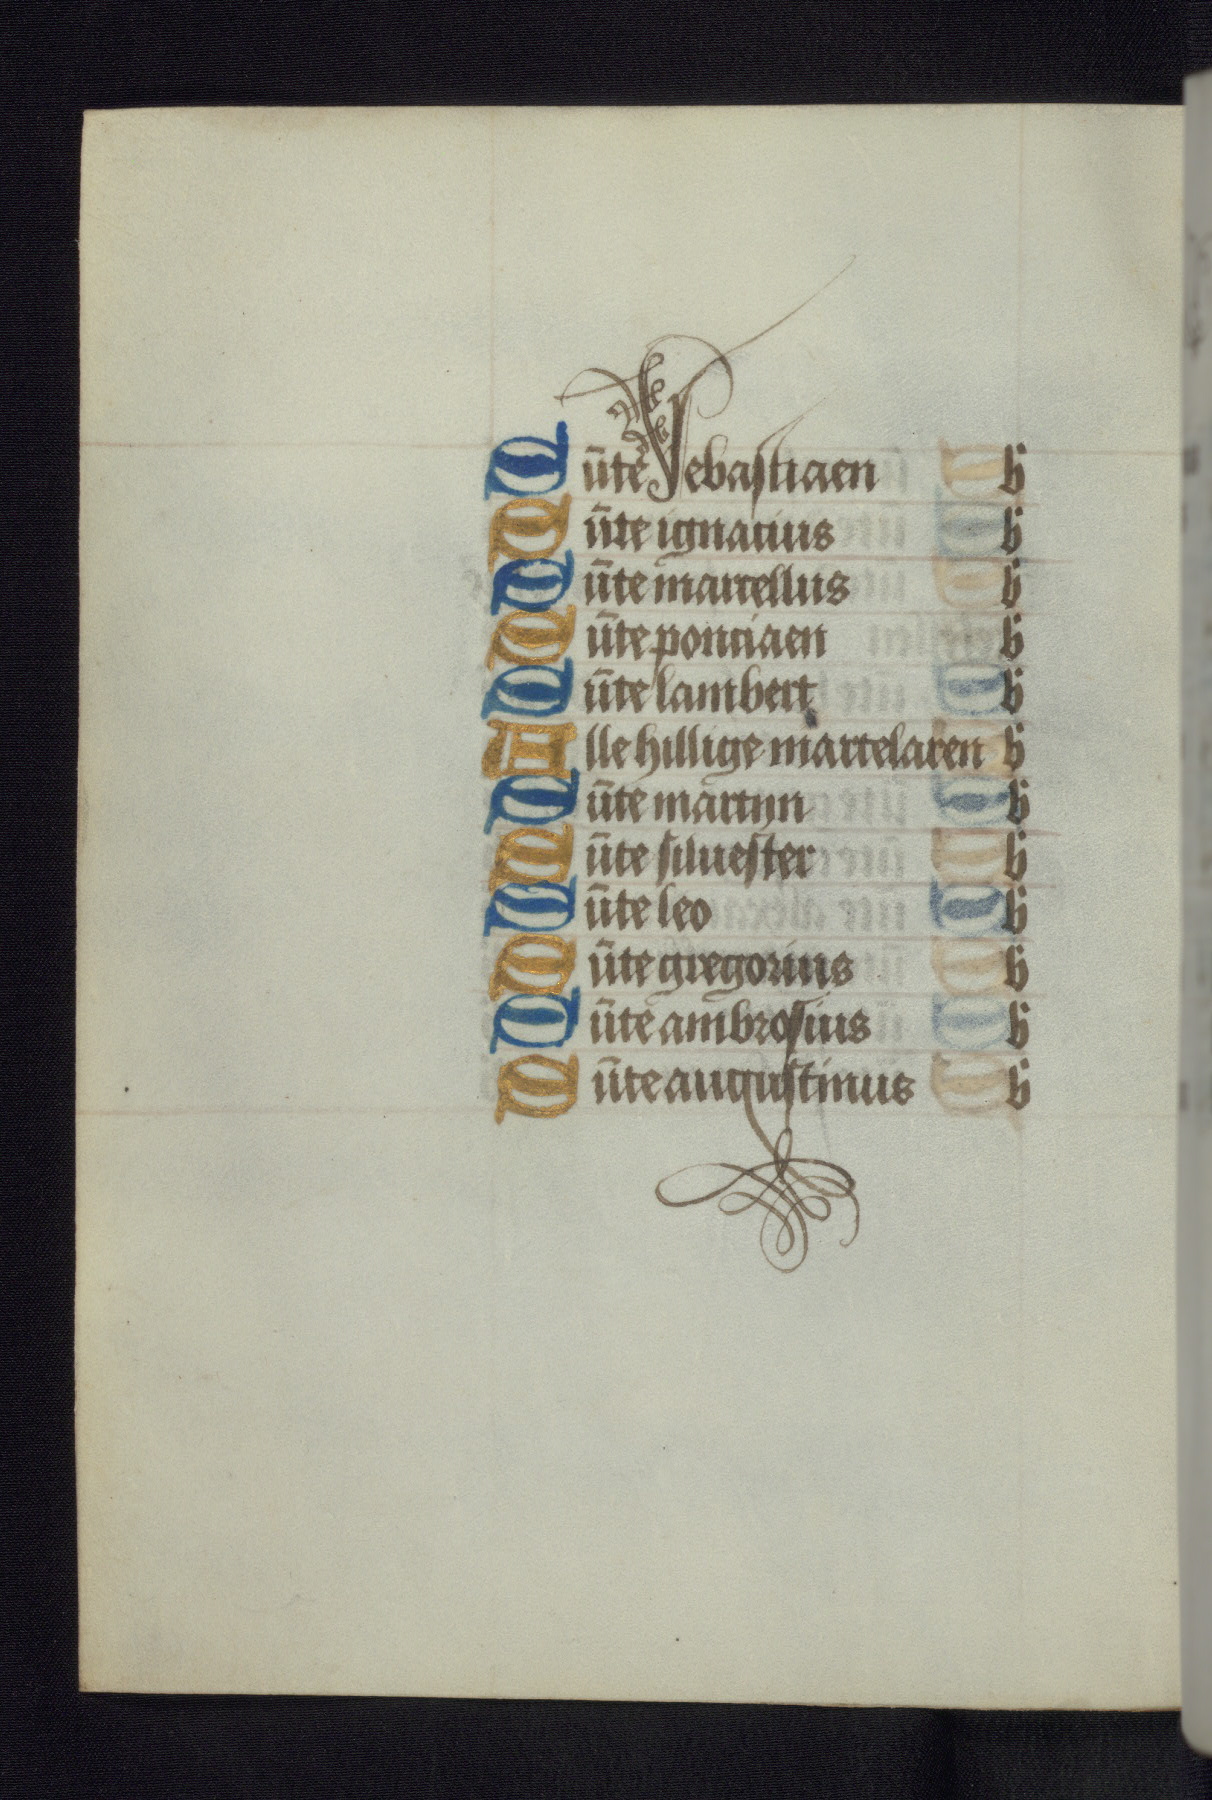 Sūte Sebastiaen b
Sūte ignacius b
Sūte marcellus b
Sūte ponciaen b
Sūte lambert b
Alle hillige martelaren b
Sūte martijn b
Sūte siluester b
Sūte leo b
Sūte gregorius b
Sūte ambrosius b
Sūte augustinus b